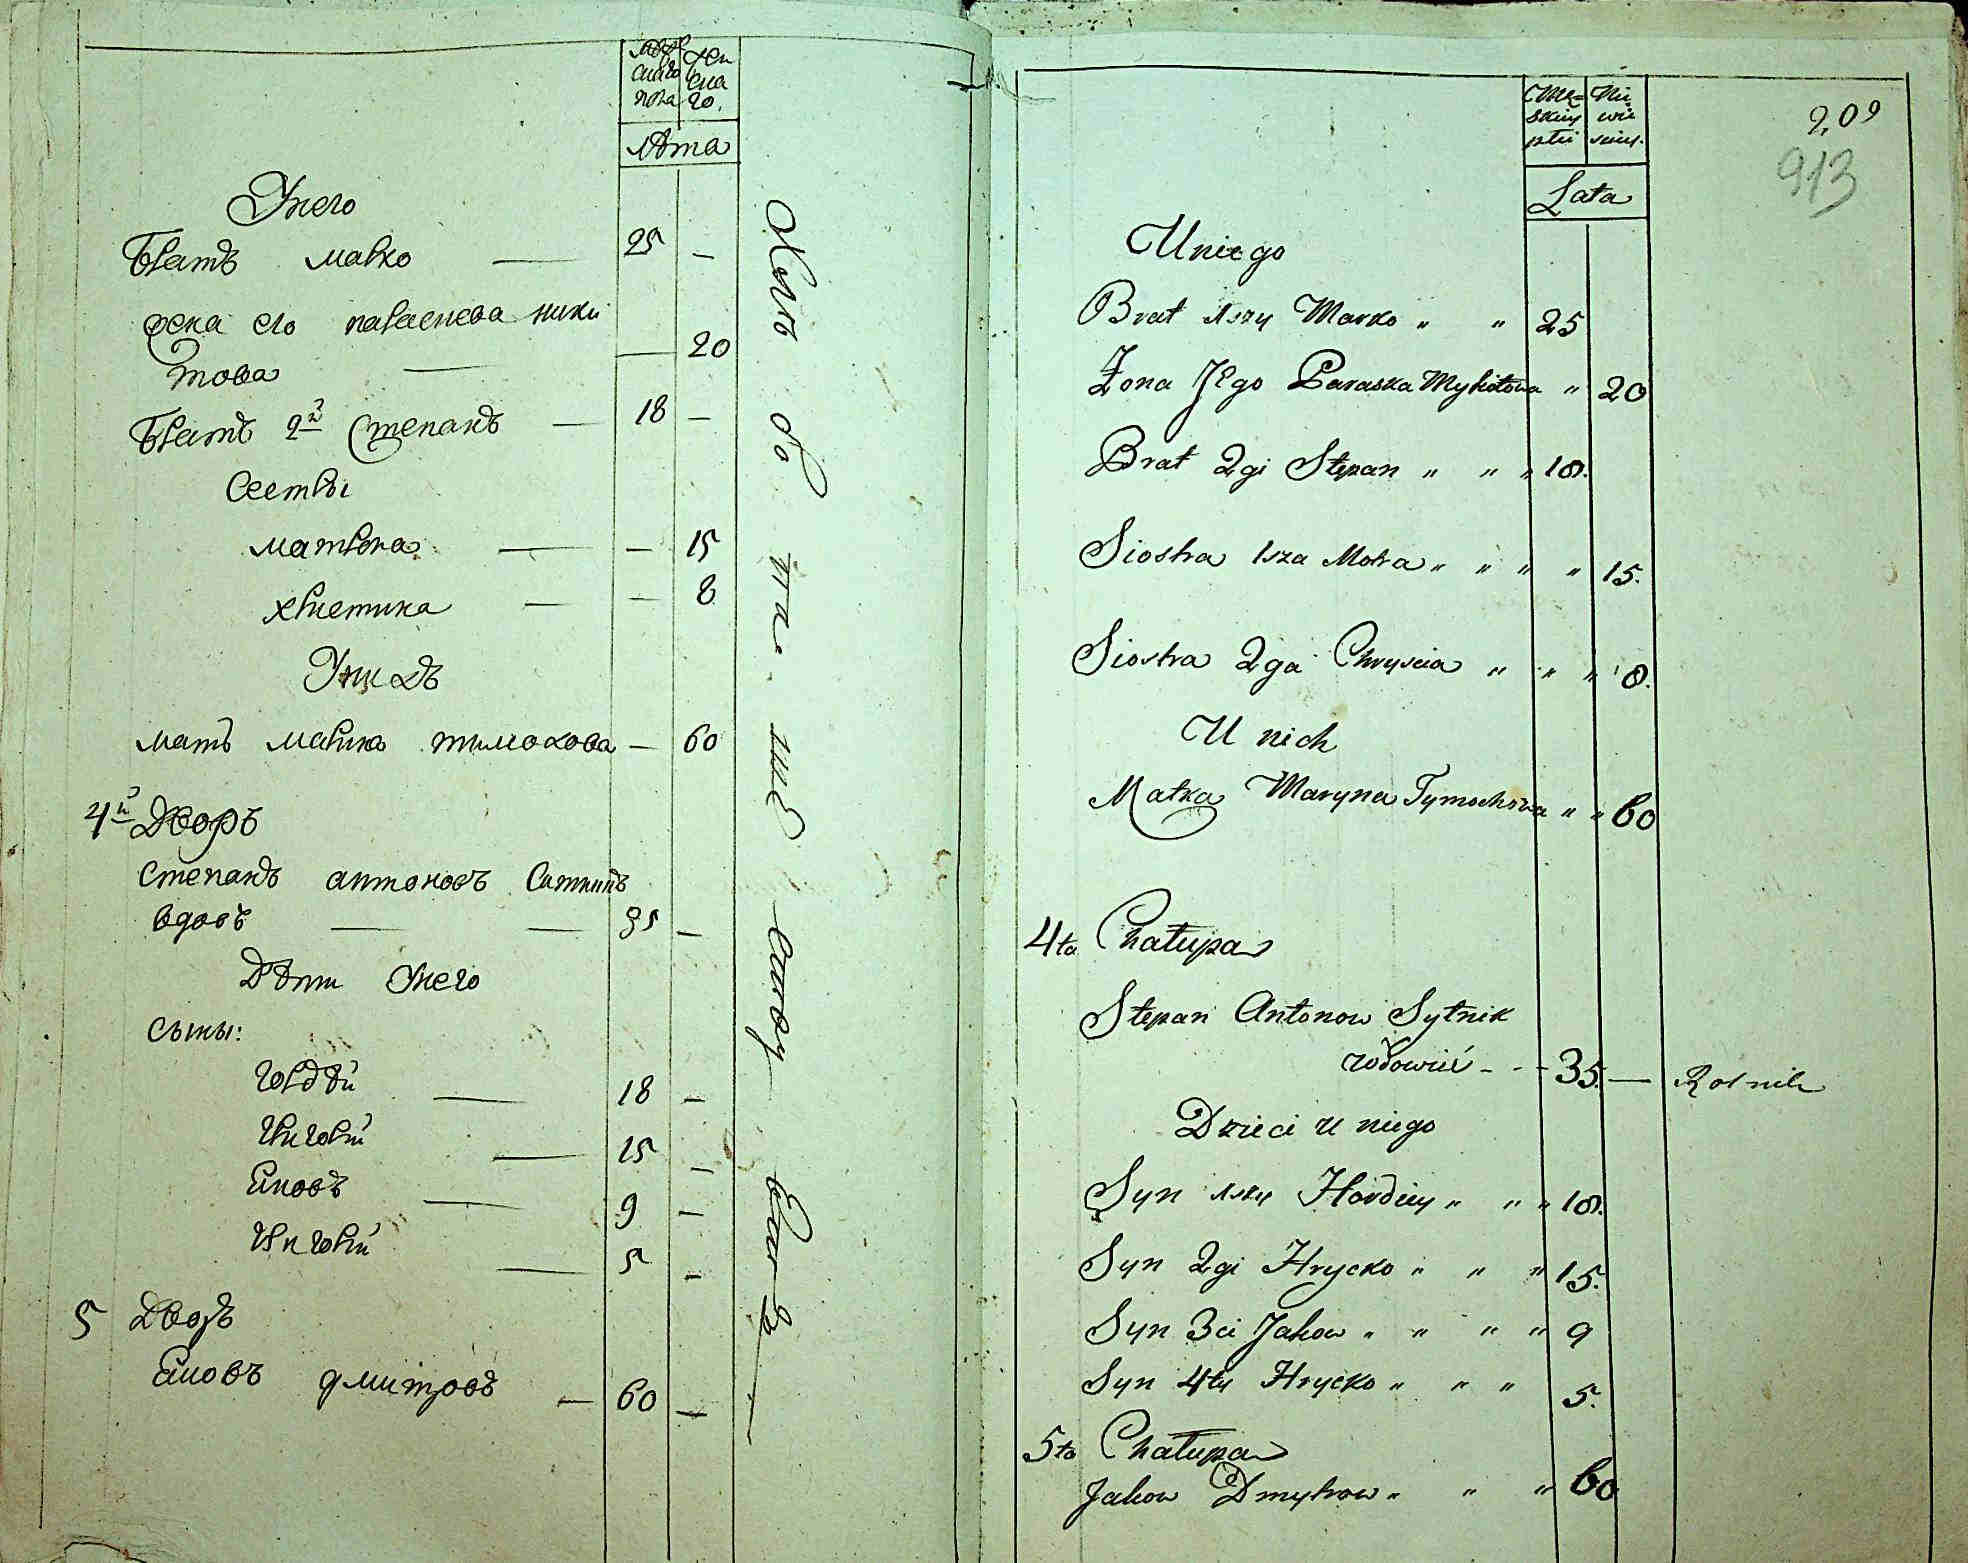 мужескаго пола
женскаго
лѣта
Унего
Братъ марко — 25 —
жена его параскева ники
това — — 20
Братъ 2й Степанъ — 18 —
Сестры
матрона — — 15
христина — — 8
Унихъ
мать марина тимохова — 60
4й Дворъ
Степанъ антоновъ Ситникъ
вдовъ — — 35 —
Дѣти Унего
сыны:
гордѣй — 18 —
григорій — 15 —
Яковъ — 9 —
григорій — 5 —
5 Дворъ
Яковъ дмитровъ — 60 —
Męzkiey płci
Niewieściey
Lata
209
913
U niego
Brat 1szy Marko " " 25
Żona Jego Paraska Mykitowa " 20
Brat 2gi Stepan " " " 18.
Siostra 1sza Motra " " " " 15.
Siostra 2ga Chryscia " " " 8.
U nich
Matka Maryna Tymochowa " " 60
4ta Chałupa
Stepan Antonow Sytnik
wdowiec - - - 35. — Rolnik
Dzieci u niego
Syn 1szy Hordiey " " " 18.
Syn 2gi Hrycko " " " 15.
Syn 3ci Jakow " " " " 9
Syn 4ty Hrycko " " " 5.
5ta Chałupa
Jakow Dmytrow " " " 60